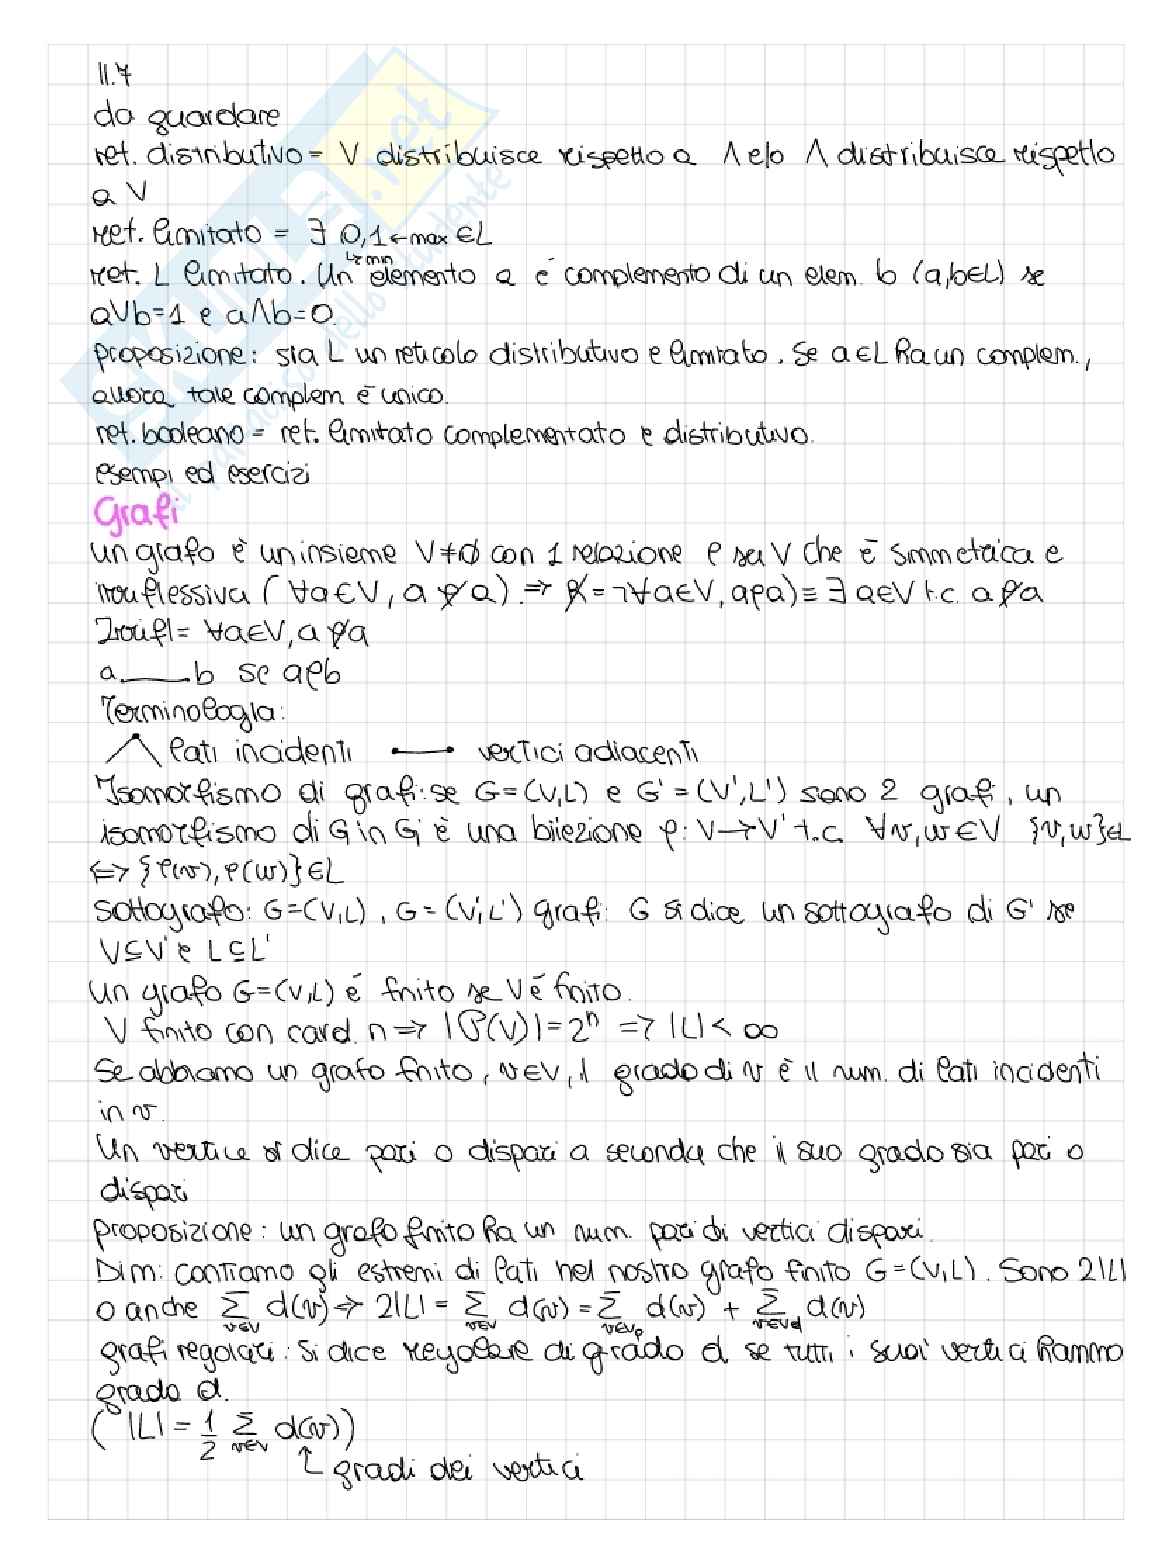 11.7
da guardare
ret. distributivo = V distribuisce rispetto a Λ e/o Λ distribuisce rispetto
a V
ret. limitato = ∃ 0,1 ← max ∈ L
↳ min
ret. L limitato. Un elemento a è complemento di un elem. b (a,b∈L) se
aVb=1 e aΛb=0.
proposizione: sia L un reticolo distributivo e limitato. Se a∈L ha un complem.,
allora tale complem è unico.
ret. booleano = ret. limitato complementato e distributivo.
esempi ed esercizi
Grafi
un grafo è un insieme V≠∅ con 1 relazione ρ su V che è simmetrica e
irriflessiva (∀a∈V, a ρ̸ a). ⇒ R̸ = ¬∀a∈V, aρa) ≡ ∃ a∈V t.c. a ρ̸ a
Irrifl = ∀a∈V, a ρ̸ a
a___b se aρb
Terminologia:
lati incidenti vertici adiacenti
Isomorfismo di grafi: se G=(V,L) e G'=(V',L') sono 2 grafi, un
isomorfismo di G in G' è una biiezione φ: V→V' t.c. ∀v,w∈V {v,w}∈L
⇔ {φ(v), φ(w)}∈L
Sottografo: G=(V,L), G=(V',L') grafi: G si dice un sottografo di G' se
V⊆V' e L⊆L'
un grafo G=(V,L) è finito se V è finito.
V finito con card. n ⇒ |P(V)|=2ⁿ ⇒ |L|<∞
Se abbiamo un grafo finito, v∈V, il grado di v è il num. di lati incidenti
in v.
Un vertice si dice pari o dispari a seconda che il suo grado sia pari o
dispari
proposizione: un grafo finito ha un num. pari di vertici dispari.
Dim: contiamo gli estremi di lati nel nostro grafo finito G=(V,L). Sono 2|L|
o anche Σ_{v∈V} d(v) ⇒ 2|L| = Σ_{v∈V} d(v) = Σ_{v∈Vp} d(v) + Σ_{v∈Vd} d(v)
grafi regolari: si dice regolare di grado d se tutti i suoi vertici hanno
grado d.
(|L| = 1/2 Σ_{v∈V} d(v))
↑ gradi dei vertici